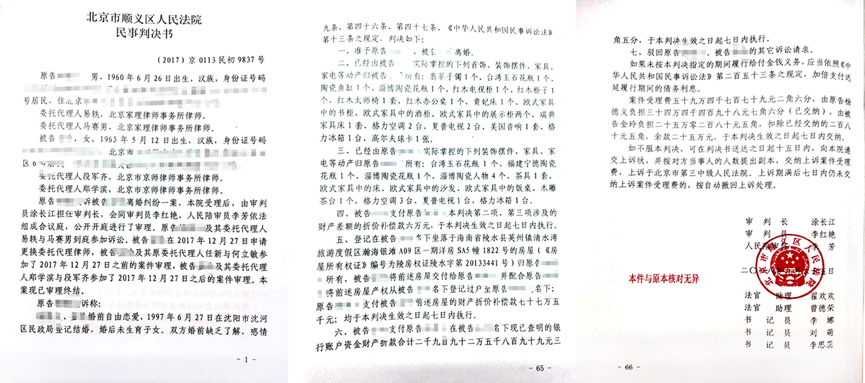 北京市顺义区人民法院
民事判决书
（2017）京 0113 民初 9837 号
原告 男，1960 年 6 月 26 日出生，汉族，身份证号码
号居民，住北京市
委托代理人易轶，北京家理律师事务所律师。
委托代理人马赛男，北京家理律师事务所律师。
被告 ，女，1963 年 5 月 12 日出生，汉族，身份证号码
北京市
区 6
委托代理人段军齐，北京市京师律师事务所律师。
委托代理人郑学滨，北京市京师律师事务所律师。
原告 诉被告 离婚纠纷一案，本院受理后，由审判
员涂长江担任审判长，会同审判员李红艳、人民陪审员李芳依法
组成合议庭，公开开庭进行了审理。原告 及其委托代理人
易轶与马赛男到庭参加诉讼。被告 在 2017 年 12 月 27 日申请
更换委托代理律师，被告 及其原委托代理人任新与何立敏参
加了 2017 年 12 月 27 日之前的案件审理，被告 及其委托代理
人郑学滨与段军齐参加了 2017 年 12 月 27 日之后的案件审理。本
案现已审理终结。
原告 诉称：
婚前自由恋爱，1997 年 6 月 27 日在沈阳市沈河
区民政局登记结婚，婚后未生育子女。双方婚前缺乏了解，感情
- 1 -
九条、第四十六条、第四十七条，《中华人民共和国民事诉讼法》
第十三条之规定，判决如下：
一、准予原告 、被告 离婚。
二、已经由被告 实际掌控的下列首饰、装饰摆件、家具、
家电等动产归被告 所有：翡翠手镯 1 个，台湾玉石花瓶 1 个、
陶瓷鱼缸 1 个，淄博陶瓷花瓶 1 个，红木电视柜 1 个，红木柜子 1
个，红木太师椅 1 套，红木办公桌 1 个，贵妃床 1 个，欧式家具
中的书柜，欧式家具中的酒柜，欧式家具中的展示柜两个，瑞典
家具床 1 套，格力空调 2 台，夏普电视 2 台，美国音响 1 套，格
力冰箱 1 台，高尔夫球卡 1 张。
三、已经由原告 实际掌控的下列装饰摆件、家具、家
电等动产归原告 所有：台湾玉石花瓶 1 个，福建宁德陶瓷
花瓶 1 个，淄博陶瓷花瓶 1 个，淄博陶瓷人物 4 个，茶具 1 套，
欧式家具中的床，欧式家具中的沙发，欧式家具中的饭桌，木雕
茶台 1 个，格力空调 3 台，夏普电视 1 台，格力冰箱 1 台。
四、被告 支付原告 本判决第二项、第三项涉及的
财产差额的折价补偿款六万元，于本判决生效之日起七日内执行。
五、登记在被告 名下坐落于海南省陵水县英州镇清水湾
旅游度假区瀚海银滩 A09 区一期洋房 SA5 幢 1822 号的房屋（《房
屋所有权证》编号为陵房权证陵水字第 20133441 号）归原告
所有，被告 将前述房屋交付给原告 并配合原告
将前述房屋产权从被告 名下登记过户至原告 名下；
原告 支付被告 前述房屋的财产折价补偿款七十七万五
千元；均于本判决生效之日起七日内执行。
六、被告 支付原告 在被告 名下现已查明的银
行账户资金财产折款合计二千九百九十二万五千八百九十九元三
- 65 -
角五分，于本判决生效之日起七日内执行。
七、驳回原告 、被告 的其它诉讼请求。
如果未按本判决指定的期间履行给付金钱义务，应当依照《中
华人民共和国民事诉讼法》第二百五十三条之规定，加倍支付迟
延履行期间的债务利息。
案件受理费五十九万四千七百七十九元二角六分，由原告杨
德义负担三十四万四千四百九十八元七角六分（已交纳），由被
告金玲负担二十五万零二百八十元五角，扣除已经交纳的二百八
十元五角，余款二十五万元，于本判决生效之日起七日内交纳。
如不服本判决，可在判决书送达之日起十五日内，向本院递
交上诉状，并按对方当事人的人数提出副本，交纳上诉案件受理
费，上诉于北京市第三中级人民法院。上诉期满后七日内仍未交
纳上诉案件受理费的，按自动撤回上诉处理。
审 判 长 涂长江
审 判 员 李红艳
人民陪审员 李 芳
本件与原本核对无异
法 官 助 理 翟欢欢
法 官 助 理 曾德荣
书 记 员 李 娜
书 记 员 刘 萌
书 记 员 李思蕊
- 66 -